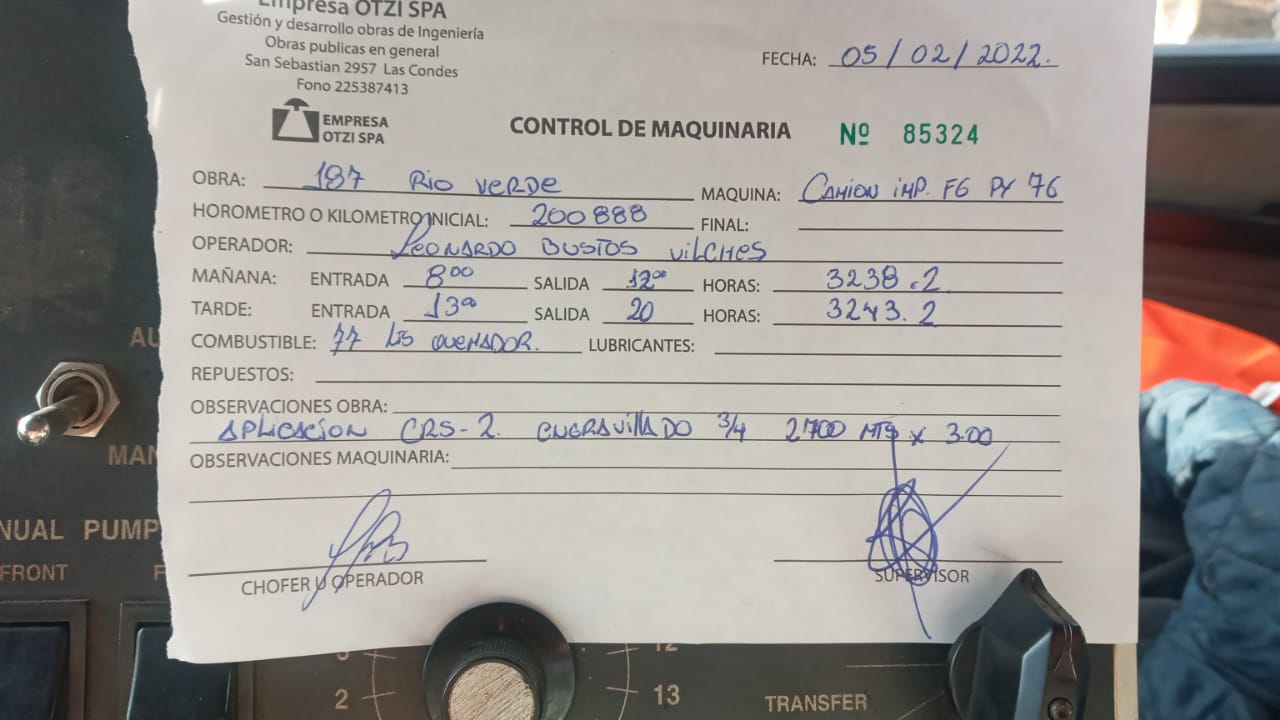 Empresa OTZI SPA
Gestión y desarrollo obras de Ingeniería
Obras publicas en general
San Sebastian 2957 Las Condes
Fono 225387413
FECHA: 05/02/2022.
EMPRESA
OTZI SPA
CONTROL DE MAQUINARIA Nº 85324
OBRA: 187 Rio VERDE MAQUINA: CAMION IMP. FG PY 76
HOROMETRO O KILOMETRO INICIAL: 200888 FINAL:
OPERADOR: LEONARDO BUSTOS VILCHES
MAÑANA: ENTRADA 8⁰⁰ SALIDA 12⁰⁰ HORAS: 3238.2
TARDE: ENTRADA 13⁰⁰ SALIDA 20 HORAS: 3243.2
COMBUSTIBLE: 77 Lts QUEMADOR. LUBRICANTES:
REPUESTOS:
OBSERVACIONES OBRA:
APLICACION CRS-2. ENGRAVILLADO 3/4 2700 MTS x 3.00
OBSERVACIONES MAQUINARIA:
CHOFER U OPERADOR
SUPERVISOR
AU
MAN
NUAL PUMP
FRONT F
3 12
2 13
TRANSFER